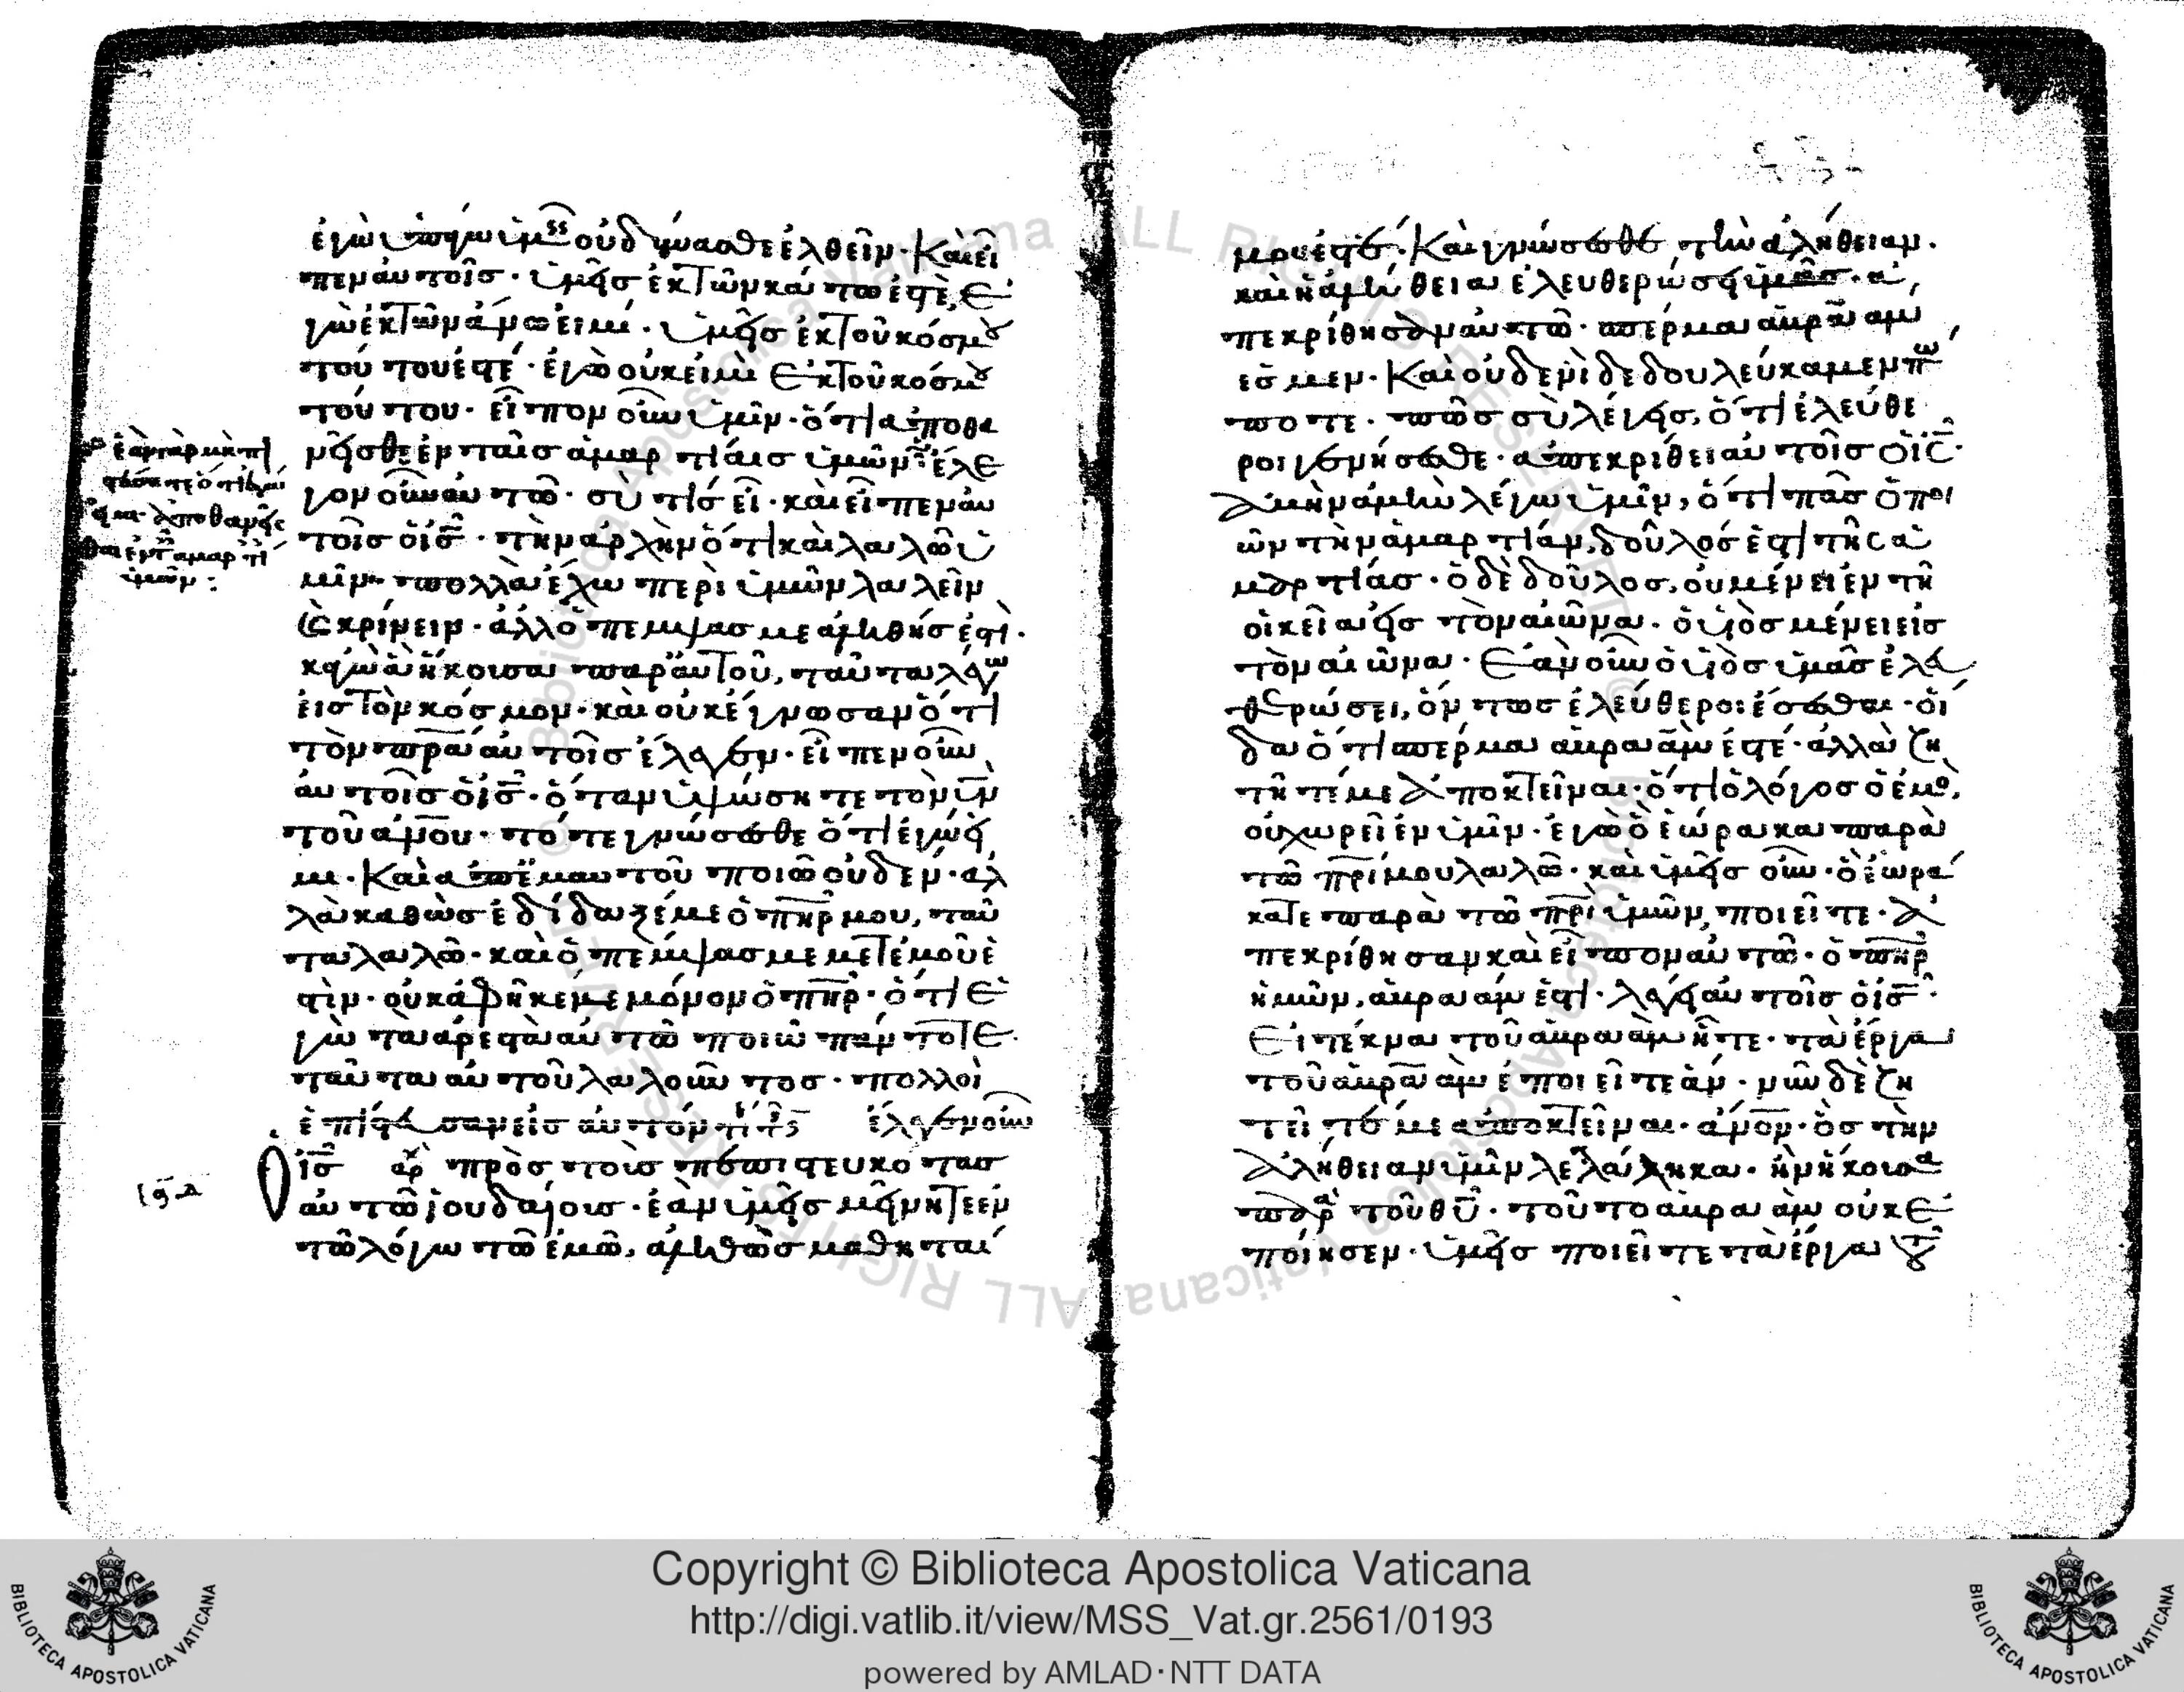 ἐγὼ ὑπάγω ὑμεῖς οὐ δύνασθε ἐλθεῖν· Καὶ εἶ
πεν αὐτοῖς· ὑμεῖς ἐκ τῶν κάτω ἐστέ, ἐ
γὼ ἐκ τῶν ἄνω εἰμί· ὑμεῖς ἐκ τοῦ κόσμου
τούτου ἐστέ· ἐγὼ οὐκ εἰμὶ ἐκ τοῦ κόσμου
τούτου· εἶπον οὖν ὑμῖν· ὅτι ἀποθα
νεῖσθε ἐν ταῖς ἁμαρτίαις ὑμῶν· ἔλε
γον οὖν αὐτῶ· σὺ τίς εἶ· καὶ εἶπεν αὐ
τοῖς ὁ ἰς̅· τὴν ἀρχὴν ὅτι καὶ λαλῶ ὑ
μῖν· πολλὰ ἔχω περὶ ὑμῶν λαλεῖν
καὶ κρίνειν· ἀλλ' ὁ πέμψας με ἀληθής ἐστι·
κἀγὼ ἃ ἤκουσα παρ' αὐτοῦ, ταῦτα λέγω
εἰς τὸν κόσμον· καὶ οὐκ ἔγνωσαν ὅτι
τὸν π̅ρ̅α̅ αὐτοῖς ἔλεγεν· εἶπεν οὖν
αὐτοῖς ὁ ἰς̅· ὅταν ὑψώσητε τὸν υ̅ν̅
τοῦ α̅ν̅ο̅υ̅· τότε γνώσεσθε ὅτι ἐγώ εἰ
μι· Καὶ ἀπ' ἐμαυτοῦ ποιῶ οὐδέν· ἀλ
λὰ καθὼς ἐδίδαξέ με ὁ π̅η̅ρ̅ μου, ταῦ
τα λαλῶ· καὶ ὁ πέμψας με μετ' ἐμοῦ ἐ
στὶν· οὐκ ἀφῆκεν με μόνον ὁ π̅η̅ρ̅· ὅτι ἐ
γὼ τὰ ἀρεστὰ αὐτῶ ποιῶ πάντοτε·
ταῦτα αὐτοῦ λαλοῦντος· πολλοὶ
ἐπίστευσαν εἰς αὐτόν ἔλεγεν οὖν
ὁ ἰς̅ πρὸς τοὺς πεπιστευκότας
αὐτῶ ἰουδαίους· ἐὰν ὑμεῖς μείνητε ἐν
τῶ λόγω τῶ ἐμῶ, ἀληθῶς μαθηταί
ἐὰν γὰρ μὴ πι
στεύσητε ὅτι ἐγώ
εἰμι· ἀποθανεῖσ
θαι ἐν τ ἁμαρτί
ὑμῶν:
μου ἐστέ· Καὶ γνώσεσθε τὴν ἀλήθειαν·
καὶ ἡ ἀλήθεια ἐλευθερώσει ὑμᾶς· ἀ
πεκρίθησαν αὐτῶ· σπέρμα ἀβρααμ
ἐσμεν· Καὶ οὐδενὶ δεδουλεύκαμεν πώ
ποτε· πῶς σὺ λέγεις, ὅτι ἐλεύθε
ροι γενήσεσθε· ἀπεκρίθει αὐτοῖς ὁ ἰς̅·
ἀμὴν ἀμὴν λέγω ὑμῖν, ὅτι πᾶς ὁ ποι
ῶν τὴν ἁμαρτίαν, δοῦλός ἐστι τῆς ἁ
μαρτίας· ὁ δὲ δοῦλος, οὐ μένει ἐν τῆ
οἰκεῖα εἰς τὸν αἰῶνα· ὁ υἱὸς μένει εἰς
τὸν αἰῶνα· Ἐὰν οὖν ὁ υἱὸς ὑμᾶς ἐλευ
θερώσει, ὄντως ἐλεύθεροι ἔσεσθαι· οἶ
δα ὅτι σπέρμα ἀβρααμ ἐστέ· ἀλλὰ ζη
τῆτέ με ἀποκτεῖναι· ὅτι ὁ λόγος ὁ ἐμὸς,
οὐ χωρεῖ ἐν ὑμῖν· ἐγὼ ὃ ἑώρακα παρὰ
τῶ π̅ρ̅ί̅ μου λαλῶ· καὶ ὑμεῖς οὖν· ὃ ἑωρά
κατε παρὰ τῶ π̅ρ̅ὶ̅ ὑμῶν, ποιεῖτε· ἀ
πεκρίθησαν καὶ εἶπον αὐτῶ· ὁ π̅η̅ρ̅
ἡμῶν, ἀβρααμ ἐστι· λέγει αὐτοῖς ὁ ἰς̅·
Εἰ τέκνα τοῦ ἀβρααμ ἦτε· τὰ ἔργα
τοῦ ἀβρααμ ἐποιεῖτε ἄν· νῦν δὲ ζη
τεῖτέ με ἀποκτεῖναι· α̅ν̅ο̅ν̅· ὃς τὴν
ἀλήθειαν ὑμῖν λελάληκα· ἣν ἤκουσα
παρὰ τοῦ θ̅υ̅· τοῦτο ἀβρααμ οὐκ ἐ
ποίησεν· ὑμεῖς ποιεῖτε τὰ ἔργα τοῦ
Copyright © Biblioteca Apostolica Vaticana
http://digi.vatlib.it/view/MSS_Vat.gr.2561/0193
powered by AMLAD·NTT DATA
BIBLIOTECA APOSTOLICA VATICANA
BIBLIOTECA APOSTOLICA VATICANA